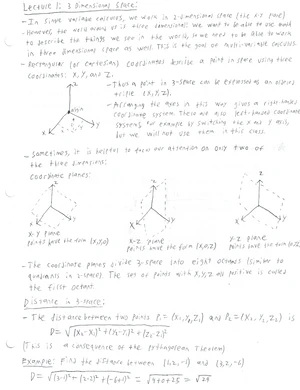 Lecture 1: 3 Dimensional Space:
- In single variable calculus, we work in 2-dimensional space (the x-y plane)
- However, the world around us is three dimensional! We want to be able to use math
to describe the things we see in the world, so we need to be able to work
in three dimensional space as well. This is the goal of multi-variable calculus.
- Rectangular (or Cartesian) coordinates describe a point in space using three
coordinates: X, Y, and Z.
- Thus a point in 3-space can be expressed as an ordered
triple (X,Y,Z).
- Arranging the axes in this way gives a right-handed
coordinate system. There are also left-handed coordinate
systems, for example by switching the X and Y axis,
but we will not use them in this class.
z
origin
x
y
- Sometimes, it is helpful to focus our attention on only two of
the three dimensions:
Coordinate planes:
z
z
z
x
y
x
y
x
y
X-Y plane
points have the form (X,Y,0)
X-Z plane
points have the form (X,0,Z)
Y-Z plane
points have the form (0,Y,Z)
- The coordinate planes divide 3-space into eight octants (similar to
quadrants in 2-space). The set of points with X,Y,Z all positive is called
the first octant.
Distance in 3-space:
- The distance between two points P₁ = (X₁,Y₁,Z₁) and P₂ = (X₂,Y₂,Z₂) is
D = √(X₂-X₁)²+(Y₂-Y₁)²+(Z₂-Z₁)²
(This is a consequence of the Pythagorean Theorem)
Example: Find the distance between